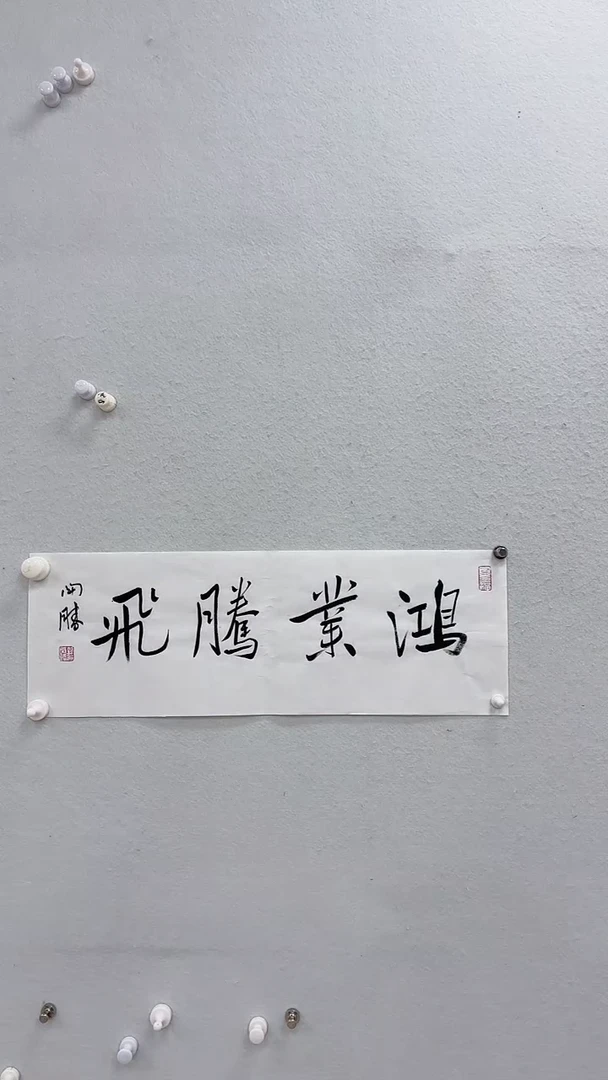 鴻業騰飛
開勝